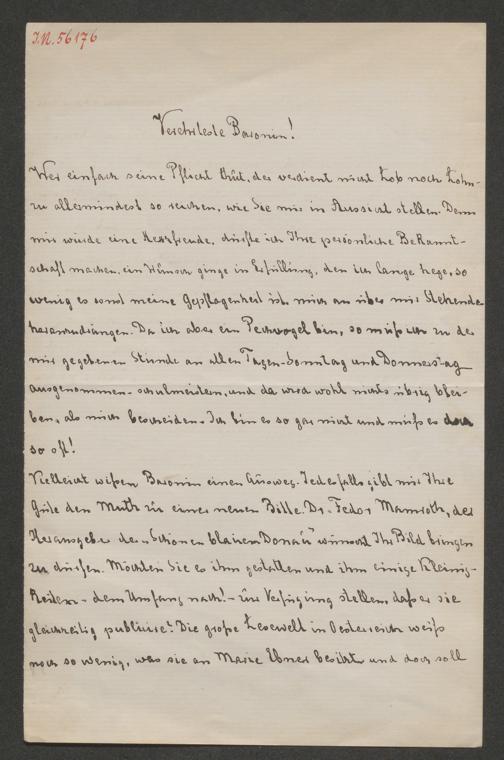 I.N. 56176
Verehrteste Baronin!
Wer einfach seine Pflicht thut, der verdient nicht Lob noch Lohn -
zu allermindest so reichen, wie Sie mir in Aussicht stellen. Denn
mir würde eine Herzfreude, dürfte ich Ihre persönliche Bekannt-
schaft machen, ein Wunsch ginge in Erfüllung, den ich lange hege, so
wenig es sonst meine Gepflogenheit ist, mich an über mir Stehende
heranzudrängen. Da ich aber ein Pechvogel bin, so muß ich zu der
mir gegebenen Stunde an allen Tagen - Sonntag und Donnerstag
ausgenommen - schulmeistern, und da wird wohl nichts übrig blei-
ben, als mich bescheiden. Ich bin es so gar nicht und muß es doch
so oft!
Vielleicht wißen Baronin einen Ausweg. Jedesfalls gibt mir Ihre
Güte den Muth zu einer neuen Bitte. Dr. Fedor Mamroth, der
Herausgeber der "Schönen blauen Donau" wünscht Ihr Bild bringen
zu dürfen. Möchten Sie es ihm gestatten und ihm einige Kleinig-
keiten - dem Umfang nach! - zur Verfügung stellen, daß er sie
gleichzeitig publicire? Die große Lesewelt in Oesterreich weiß
noch so wenig, was sie an Marie Ebner besitzt und doch soll